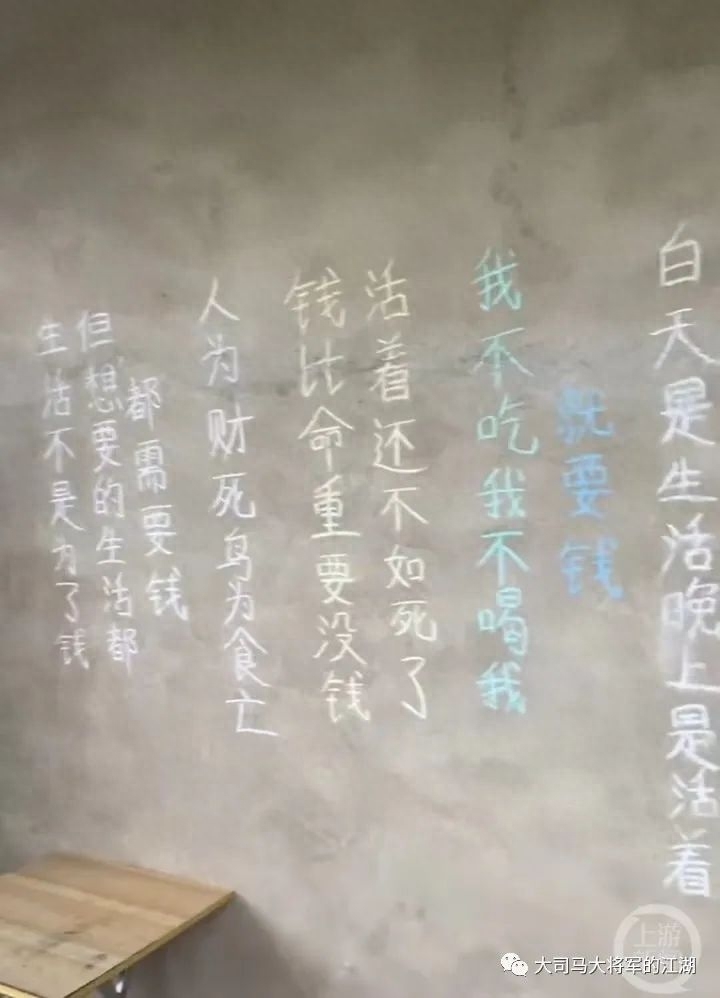 生活不是为了钱
但想要的生活都
都需要钱
人为财死鸟为食亡
钱比命重要没钱
活着还不如死了
我不吃我不喝我
就要钱
白天是生活晚上是活着
上游
大司马大将军的江湖